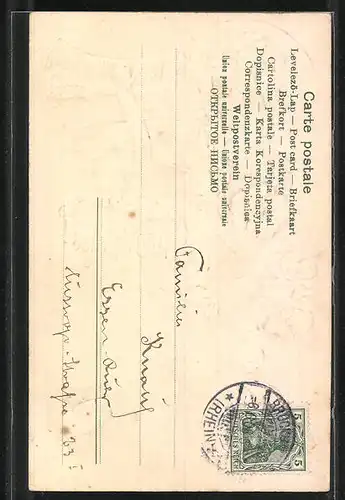 Carte postale
Levelező-Lap — Post card — Briefkaart
Brefkort — Postkarte
Cartolina postale — Tarjeta postal
Dopisnice — Karta Korespondencyjna
Correspondenzkarte — Dopisnica
Weltpostverein
Union postale universelle — Unione postale universale
ОТКРЫТОЕ ПИСЬМО
Familie
Knauf
Essen-Ruhr
33 I
5
5
DEUTSCHES REICH
(RHEIN